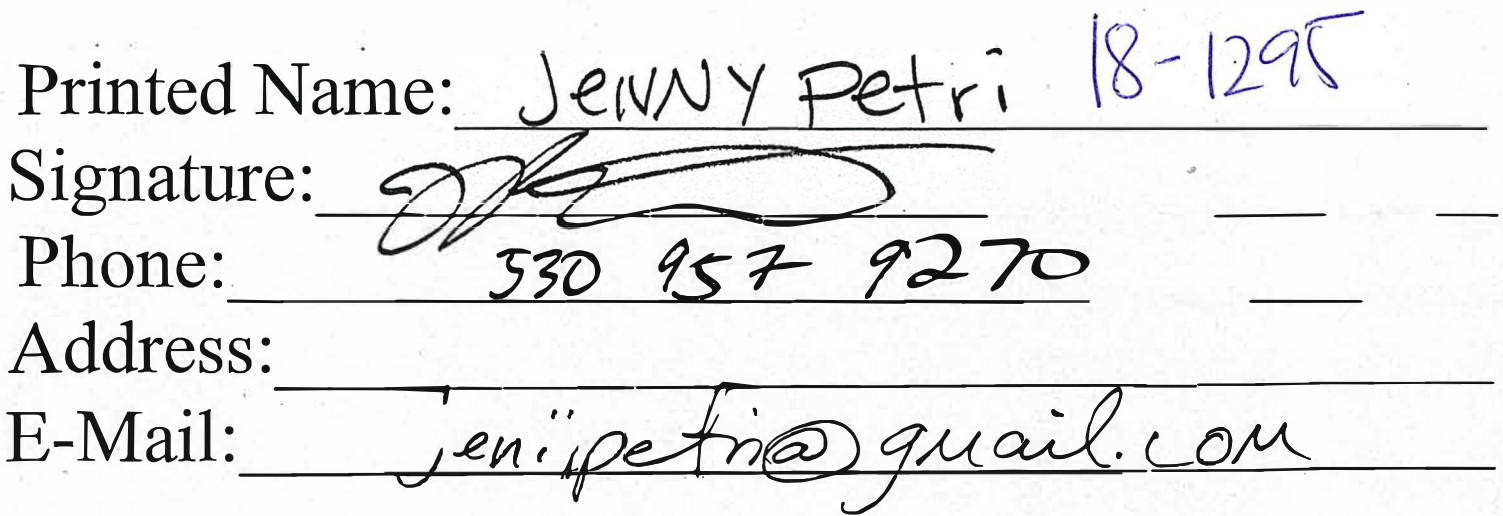 Printed Name: Jenny Petri 18-1295
Signature:
Phone: 530 957 9270
Address:
E-Mail: jeniipetri@gmail.com